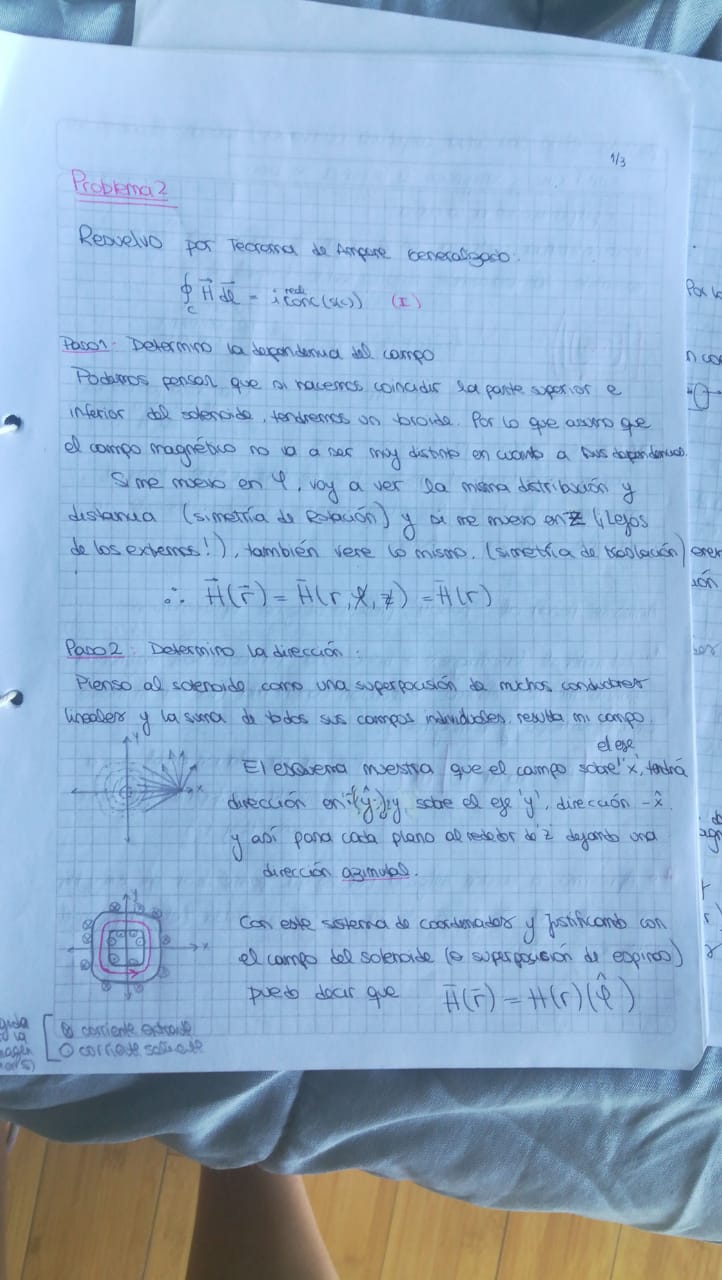 1/3
Problema 2
Resuelvo por Teorema de Ampere Generalizado.
∮c H⃗ dl⃗ = i conc(s(c)) (I)
Paso 1: Determino la dependencia del campo
Podemos pensar que si hacemos coincidir la parte superior e
inferior del solenoide, tendremos un toroide. Por lo que asumo que
el campo magnético no va a ser muy distinto en cuanto a sus dependencias.
Si me muevo en φ, voy a ver la misma distribución y
distancia (simetría de Rotación) y si me muevo en z (¡Lejos
de los extremos!), también veré lo mismo. (simetría de traslación)
∴ H̄(r̄) = H̄(r, φ, z) = H̄(r)
Paso 2: Determino la dirección:
Pienso al solenoide como una superposición de muchos conductores
lineales y la suma de todos sus campos individuales, resulta mi campo.
y
El esquema muestra que el campo sobre el eje 'x', tendrá
dirección en (ŷ) y sobre el eje 'y', dirección -x̂.
y así para cada plano alrededor de z dejando una
dirección azimutal.
y
x
Con este sistema de coordenadas y justificando con
el campo del solenoide (o superposición de espiras)
puedo decir que H̄(r̄) = H(r)(φ̂)
⊗ corriente entrante
O corriente saliente